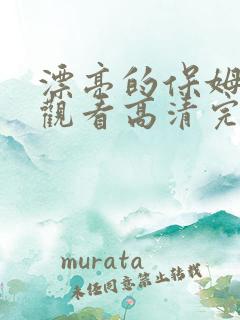 漂亮的保姆
觀看高清完
murata
未经同意禁止转载